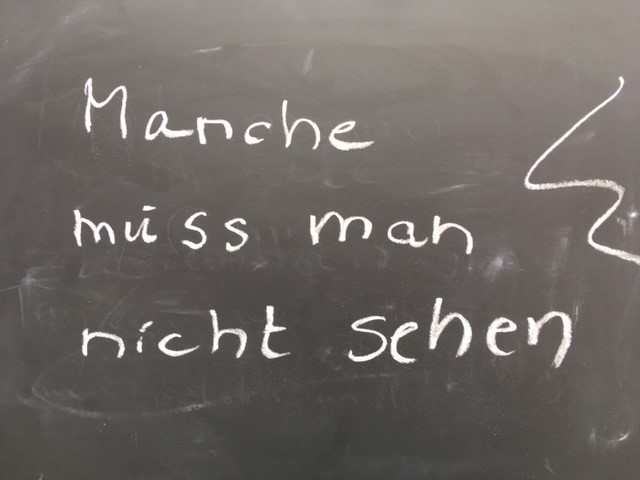 Manche
muss man
nicht sehen